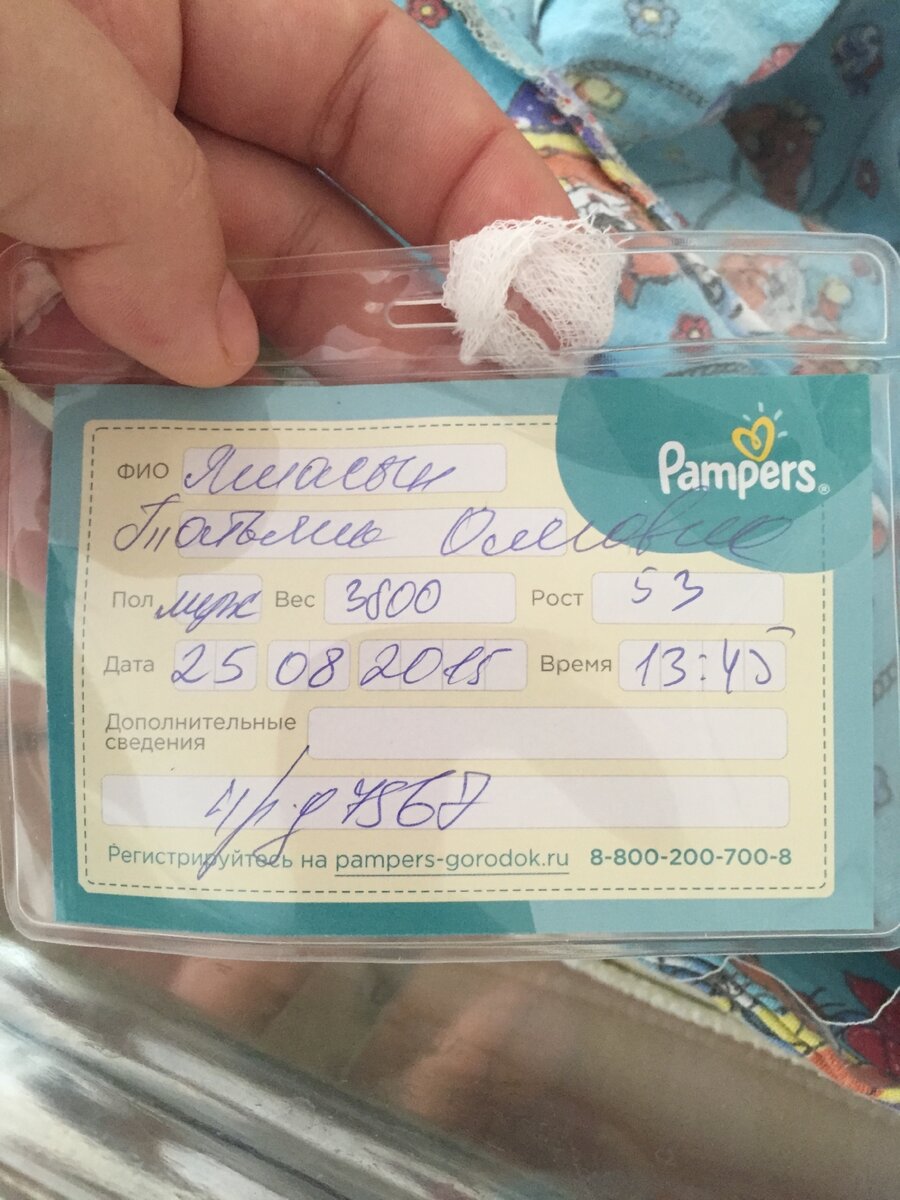 Pampers®
ФИО
Татьяна Олеговна
Пол муж Вес 3800 Рост 53
Дата 25 08 2015 Время 13:45
Дополнительные
сведения
Регистрируйтесь на pampers-gorodok.ru 8-800-200-700-8